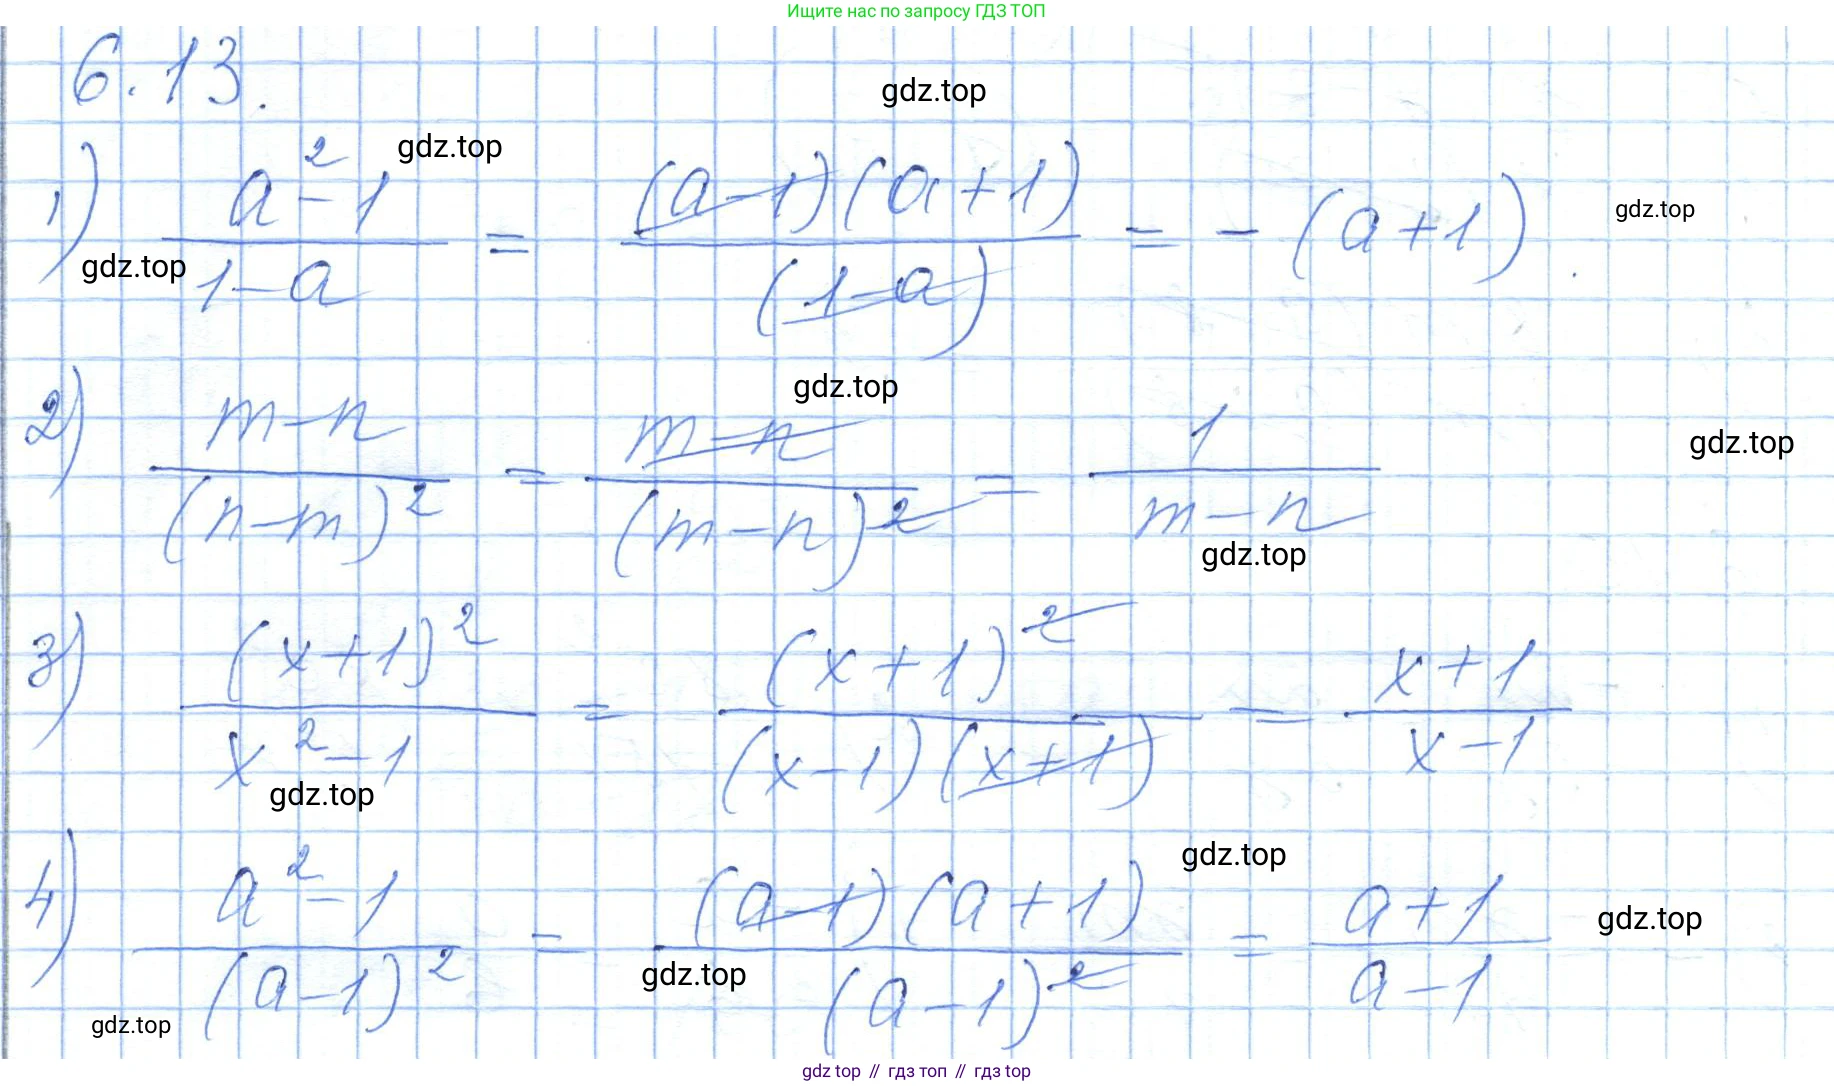 Ищите нас по запросу ГДЗ ТОП
6.13.
gdz.top
gdz.top
1) (a²-1)/(1-a) = ((a-1)(a+1))/((1-a)) = -(a+1).
gdz.top
gdz.top
gdz.top
2) (m-n)/(n-m)² = (m-n)/(m-n)² = 1/(m-n)
gdz.top
gdz.top
3) (x+1)²/(x²-1) = (x+1)²/((x-1)(x+1)) = (x+1)/(x-1)
gdz.top
gdz.top
4) (a²-1)/(a-1)² = ((a-1)(a+1))/(a-1)² = (a+1)/(a-1)
gdz.top
gdz.top
gdz.top
gdz top // гдз топ // гдз top